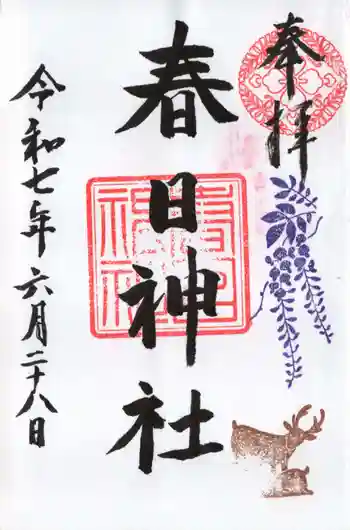 奉拝
春日神社
春日神社
令和七年六月二十八日